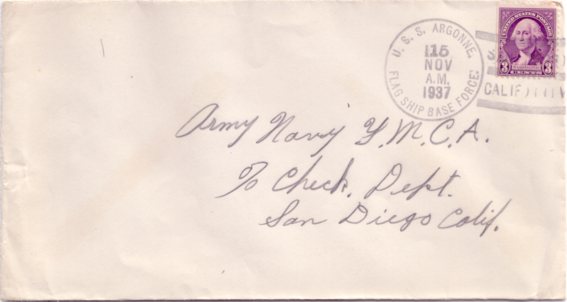 U. S. S. ARGONNE.
15
NOV
A.M.
1937
FLAG SHIP BASE FORCE.
UNITED STATES POSTAGE
3 3
CALIF
Army Navy Y.M.C.A.
To Check. Dept.
San Diego Calif.